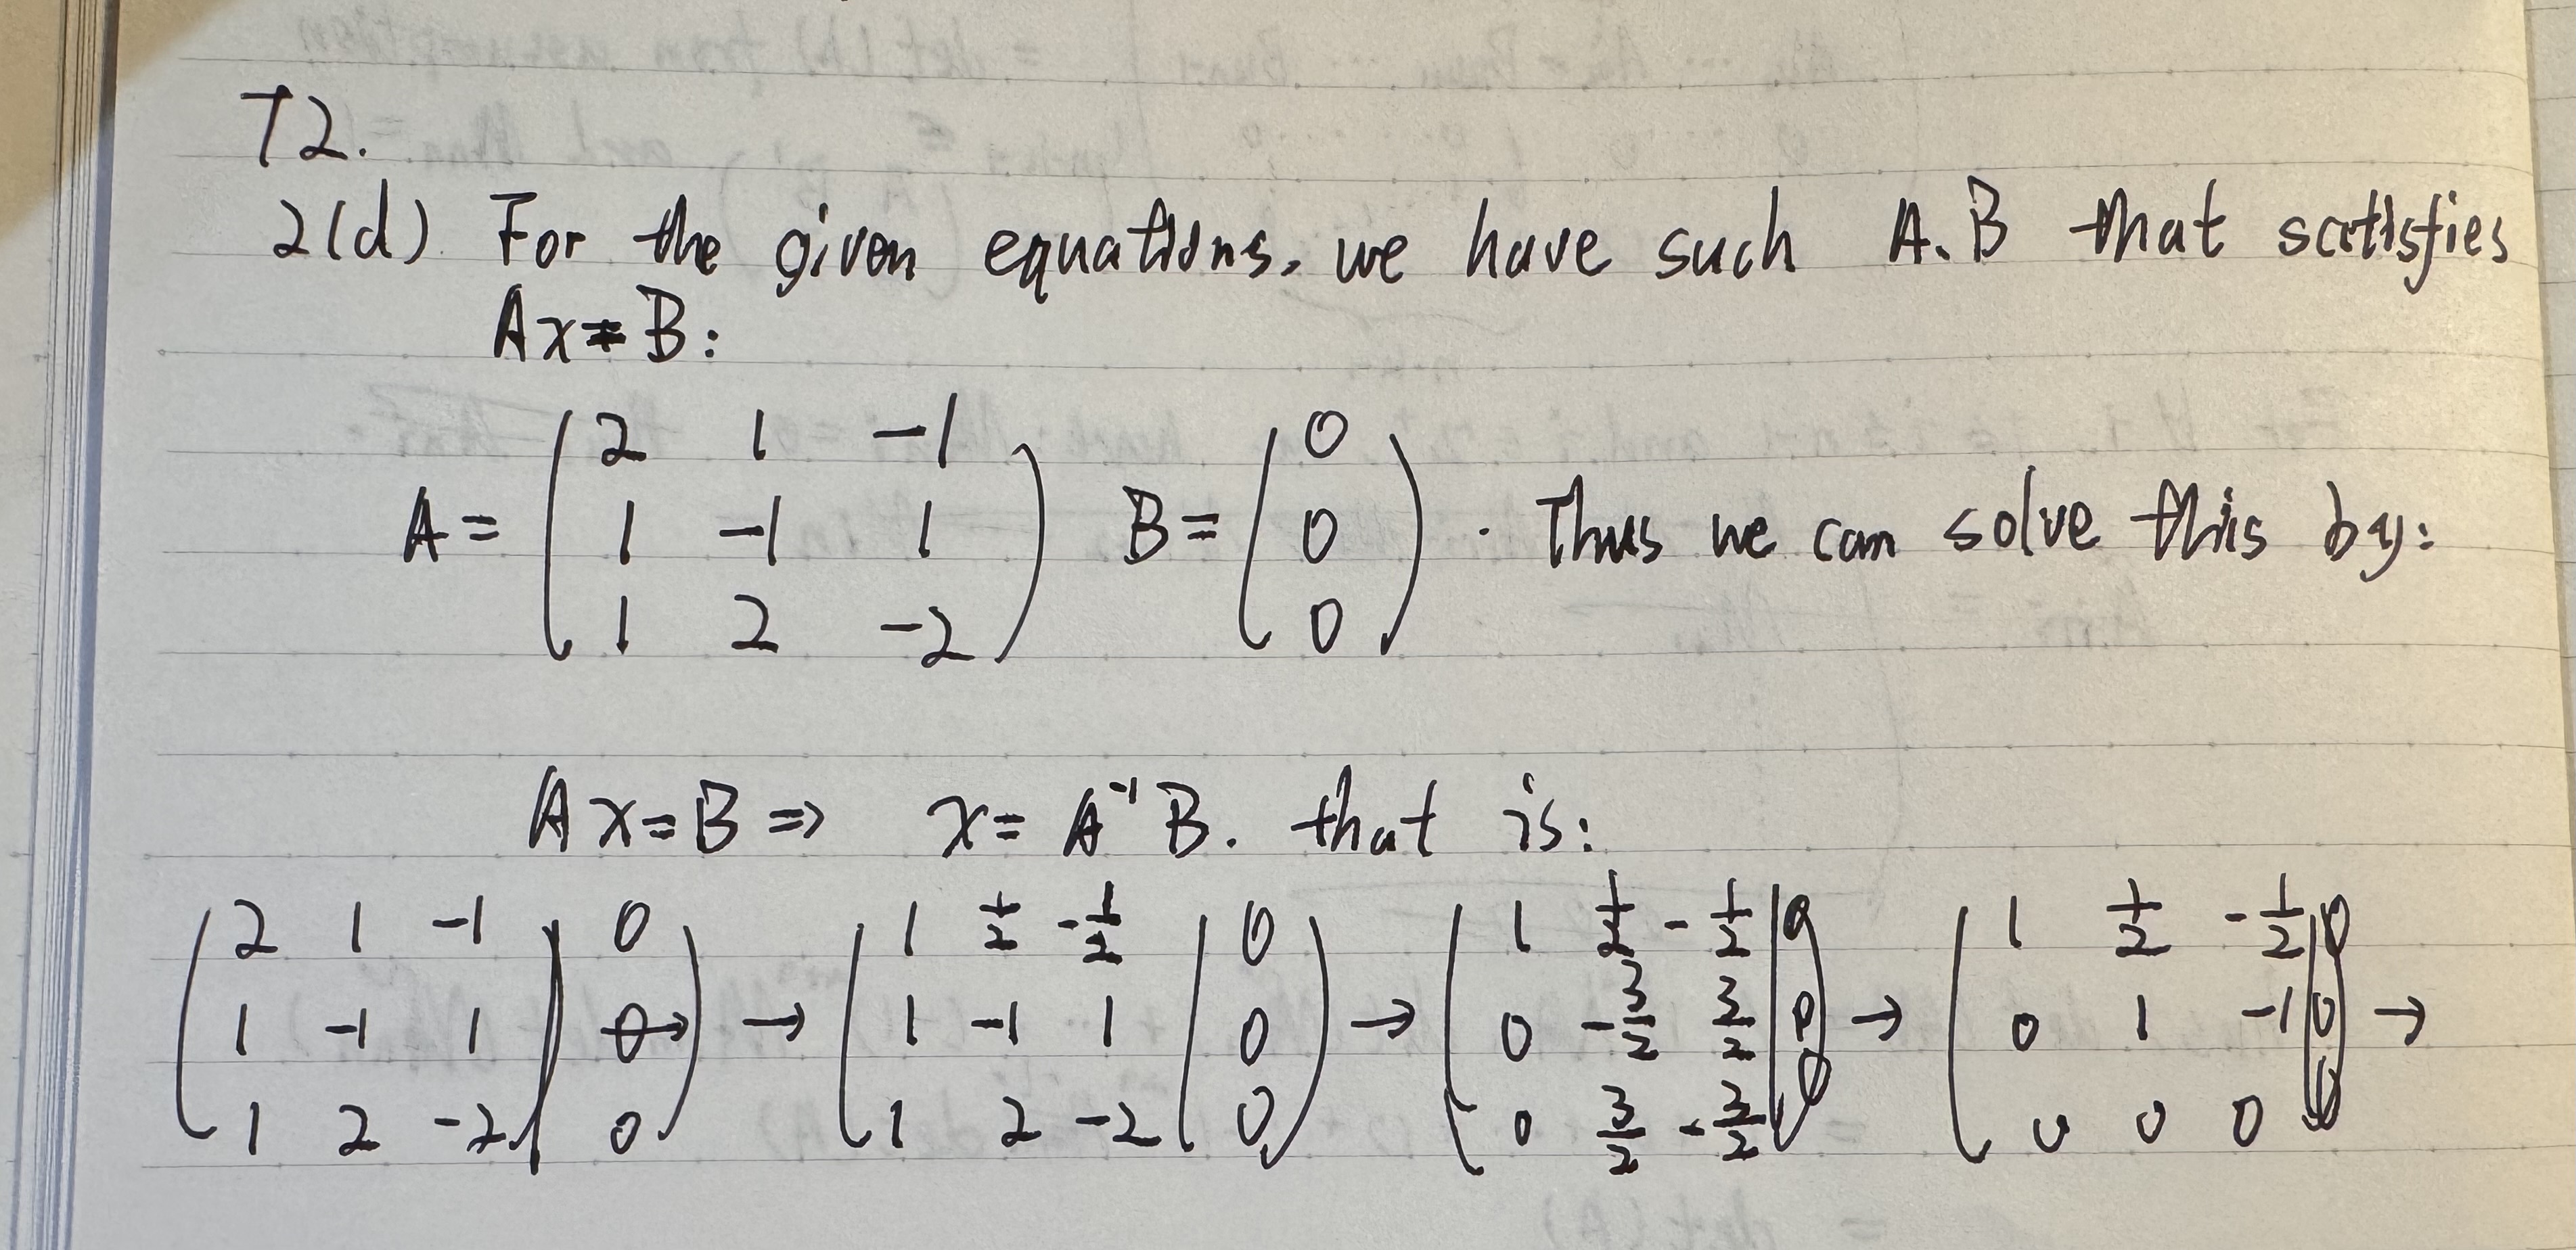 T2.
2(d) For the given equations, we have such A.B that satisfies
Ax=B:
A= ( 2 1 -1 ; 1 -1 1 ; 1 2 -2 ) B= ( 0 ; 0 ; 0 ) . Thus we can solve this by:
Ax=B => x= A⁻¹B. that is:
( 2 1 -1 | 0 ; 1 -1 1 | 0 ; 1 2 -2 | 0 ) → ( 1 1/2 -1/2 | 0 ; 1 -1 1 | 0 ; 1 2 -2 | 0 ) → ( 1 1/2 -1/2 | 0 ; 0 -3/2 3/2 | 0 ; 0 3/2 -3/2 | 0 ) → ( 1 1/2 -1/2 | 0 ; 0 1 -1 | 0 ; 0 0 0 | 0 ) →